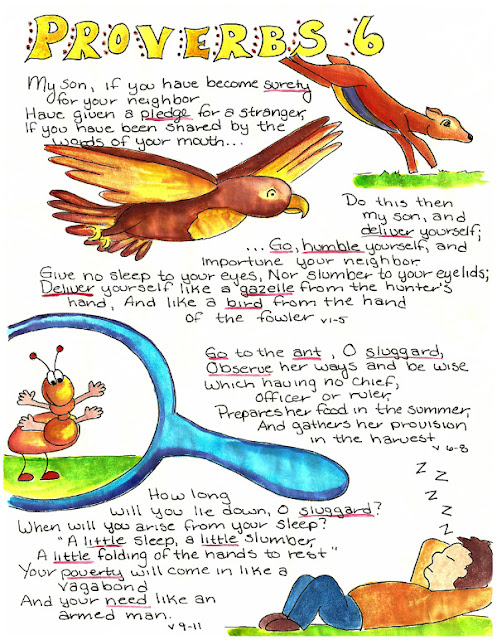 PROVERBS 6
My son, if you have become surety
for your neighbor
Have given a pledge for a stranger,
If you have been snared by the
words of your mouth...
Do this then
my son, and
deliver yourself;
... Go, humble yourself, and
importune your neighbor
Give no sleep to your eyes, Nor slumber to your eyelids;
Deliver yourself like a gazelle from the hunter's
hand, And like a bird from the hand
of the fowler v1-5
Go to the ant, O sluggard,
Observe her ways and be wise
Which having no chief,
Officer or ruler
Prepares her food in the summer,
And gathers her provision
in the harvest
v 6-8
How long
will you lie down, O sluggard?
When will you arise from your sleep?
"A little sleep, a little slumber,
A little folding of the hands to rest"
Your poverty will come in like a
vagabond
And your need like an
armed man.
v 9-11
Z
Z
Z
Z
Z